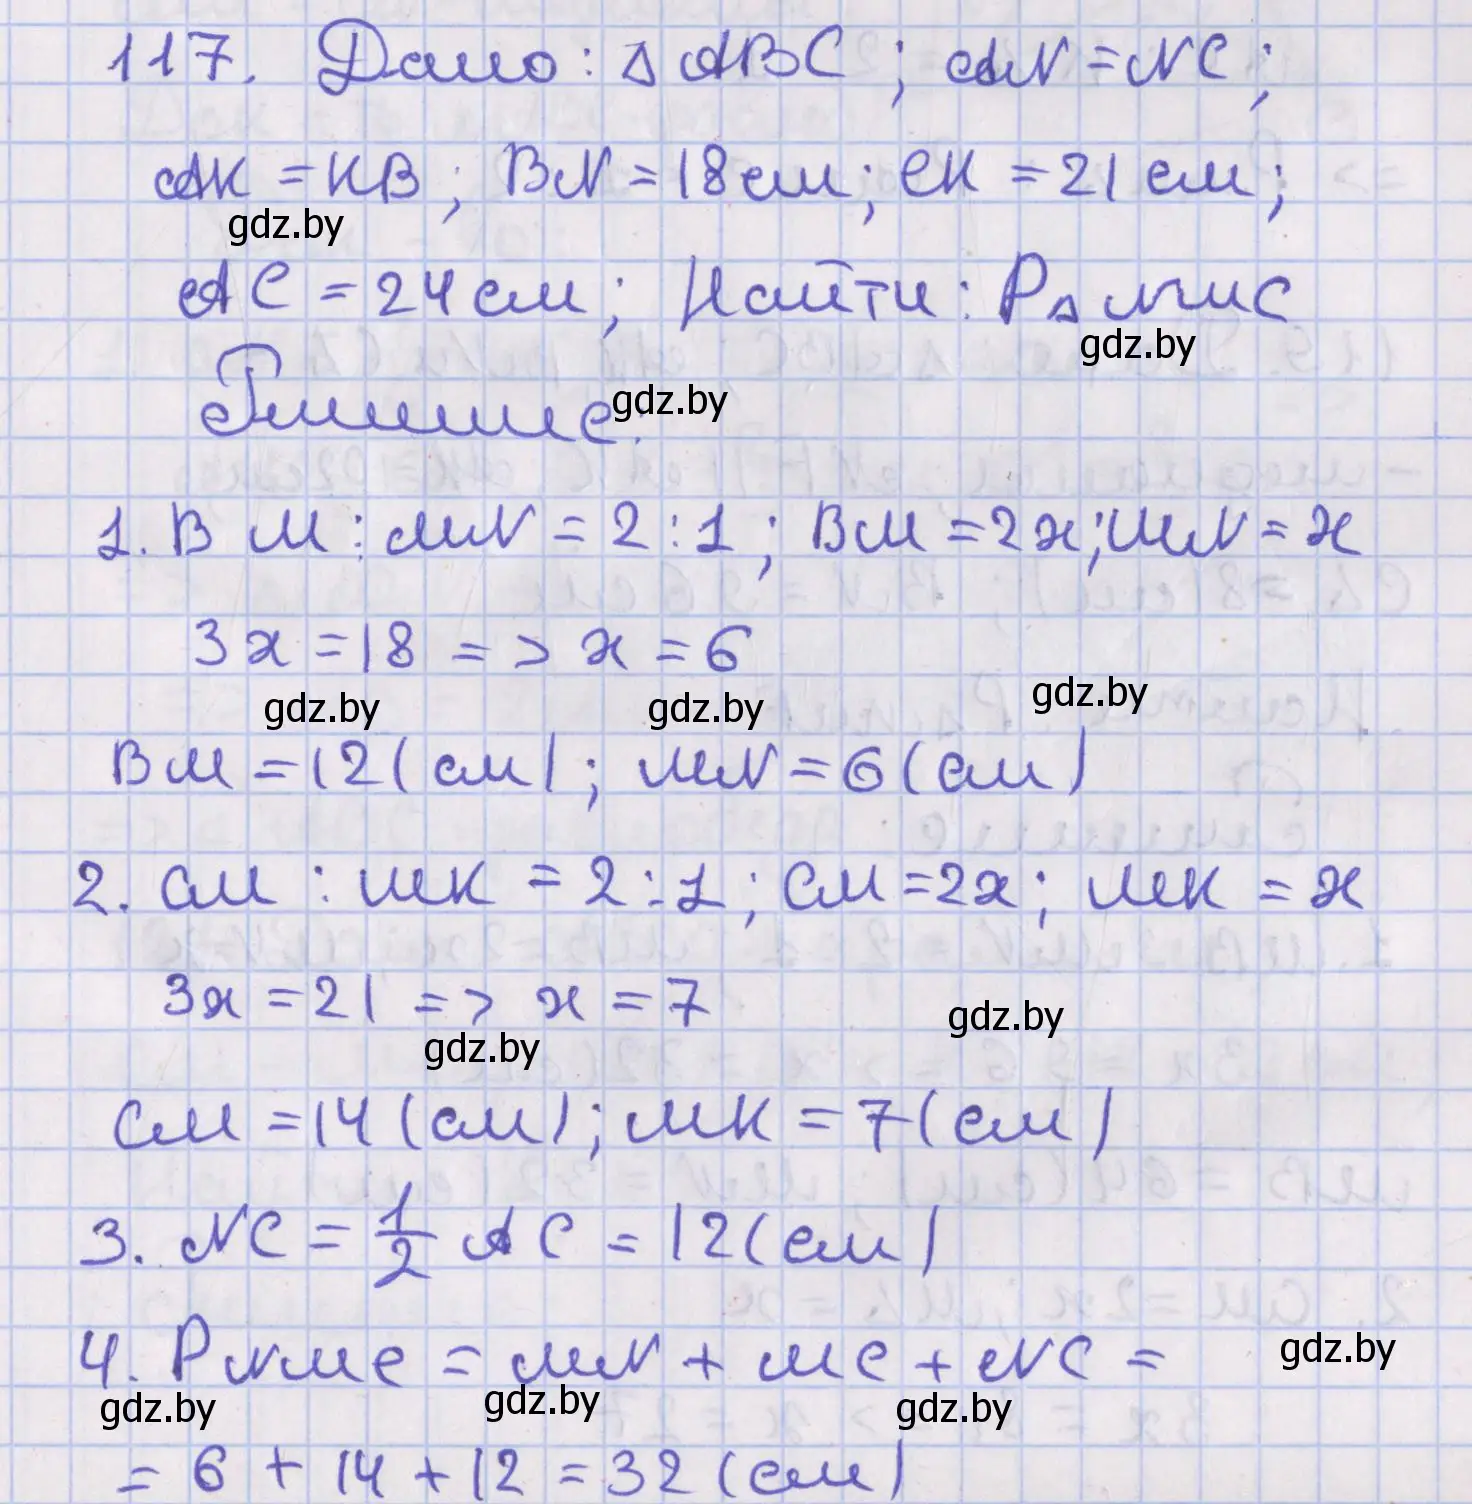 117. Дано: △ ABC; AN = NC;
AK = KB; BN = 18 см; CK = 21 см;
gdz.by
AC = 24 см; Найти: P△ MNC
gdz.by
Решение:
gdz.by
1. BM : MN = 2 : 1; BM = 2x; MN = x
3x = 18 => x = 6
gdz.by gdz.by gdz.by
BM = 12 (см); MN = 6 (см)
2. CM : MK = 2 : 1; CM = 2x; MK = x
3x = 21 => x = 7
gdz.by
gdz.by
CM = 14 (см); MK = 7 (см)
3. NC = 1/2 AC = 12 (см)
4. P NMC = MN + MC + NC =
gdz.by
gdz.by gdz.by gdz.by
= 6 + 14 + 12 = 32 (см)